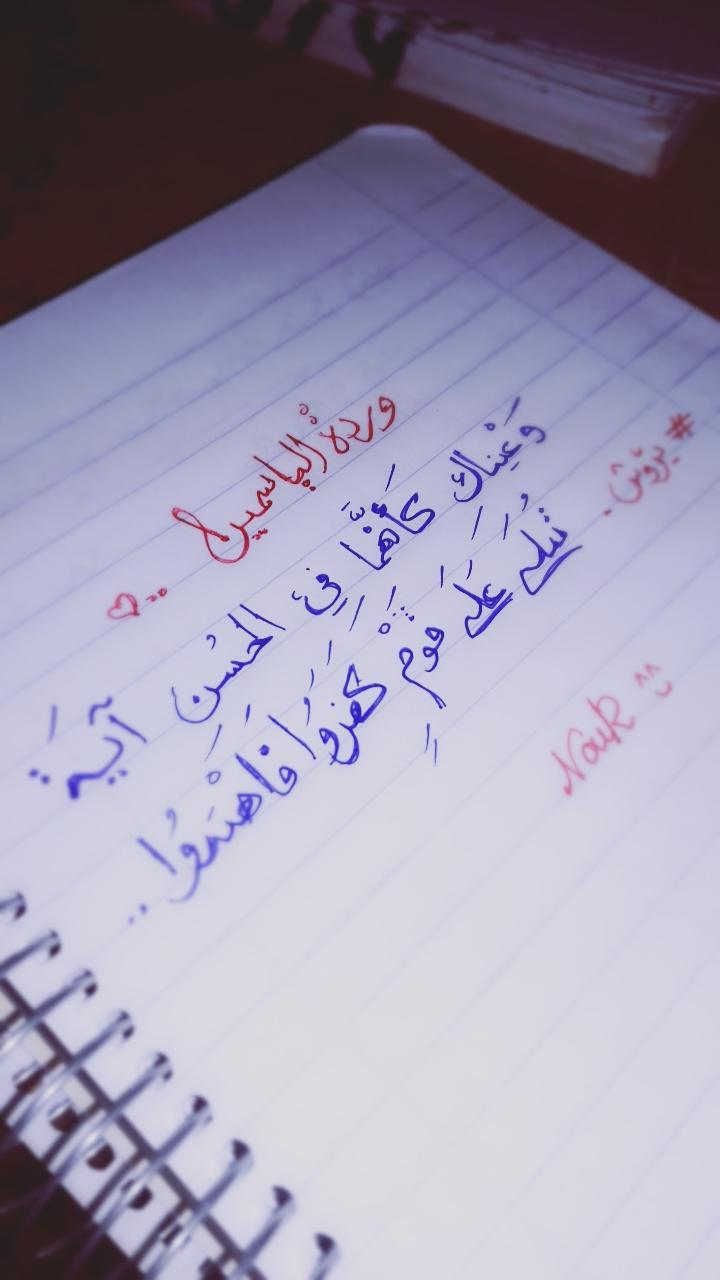 وردةُ الياسمين ..♡
وَعَيْناك كَأَنَّهُمَا فِي الحُسْن آيَة
تُتْلَى عَلَى قَوْمٍ كَفَرُوا فَاهْتَدُوا ..
#يزوّش .
Nouk ^^